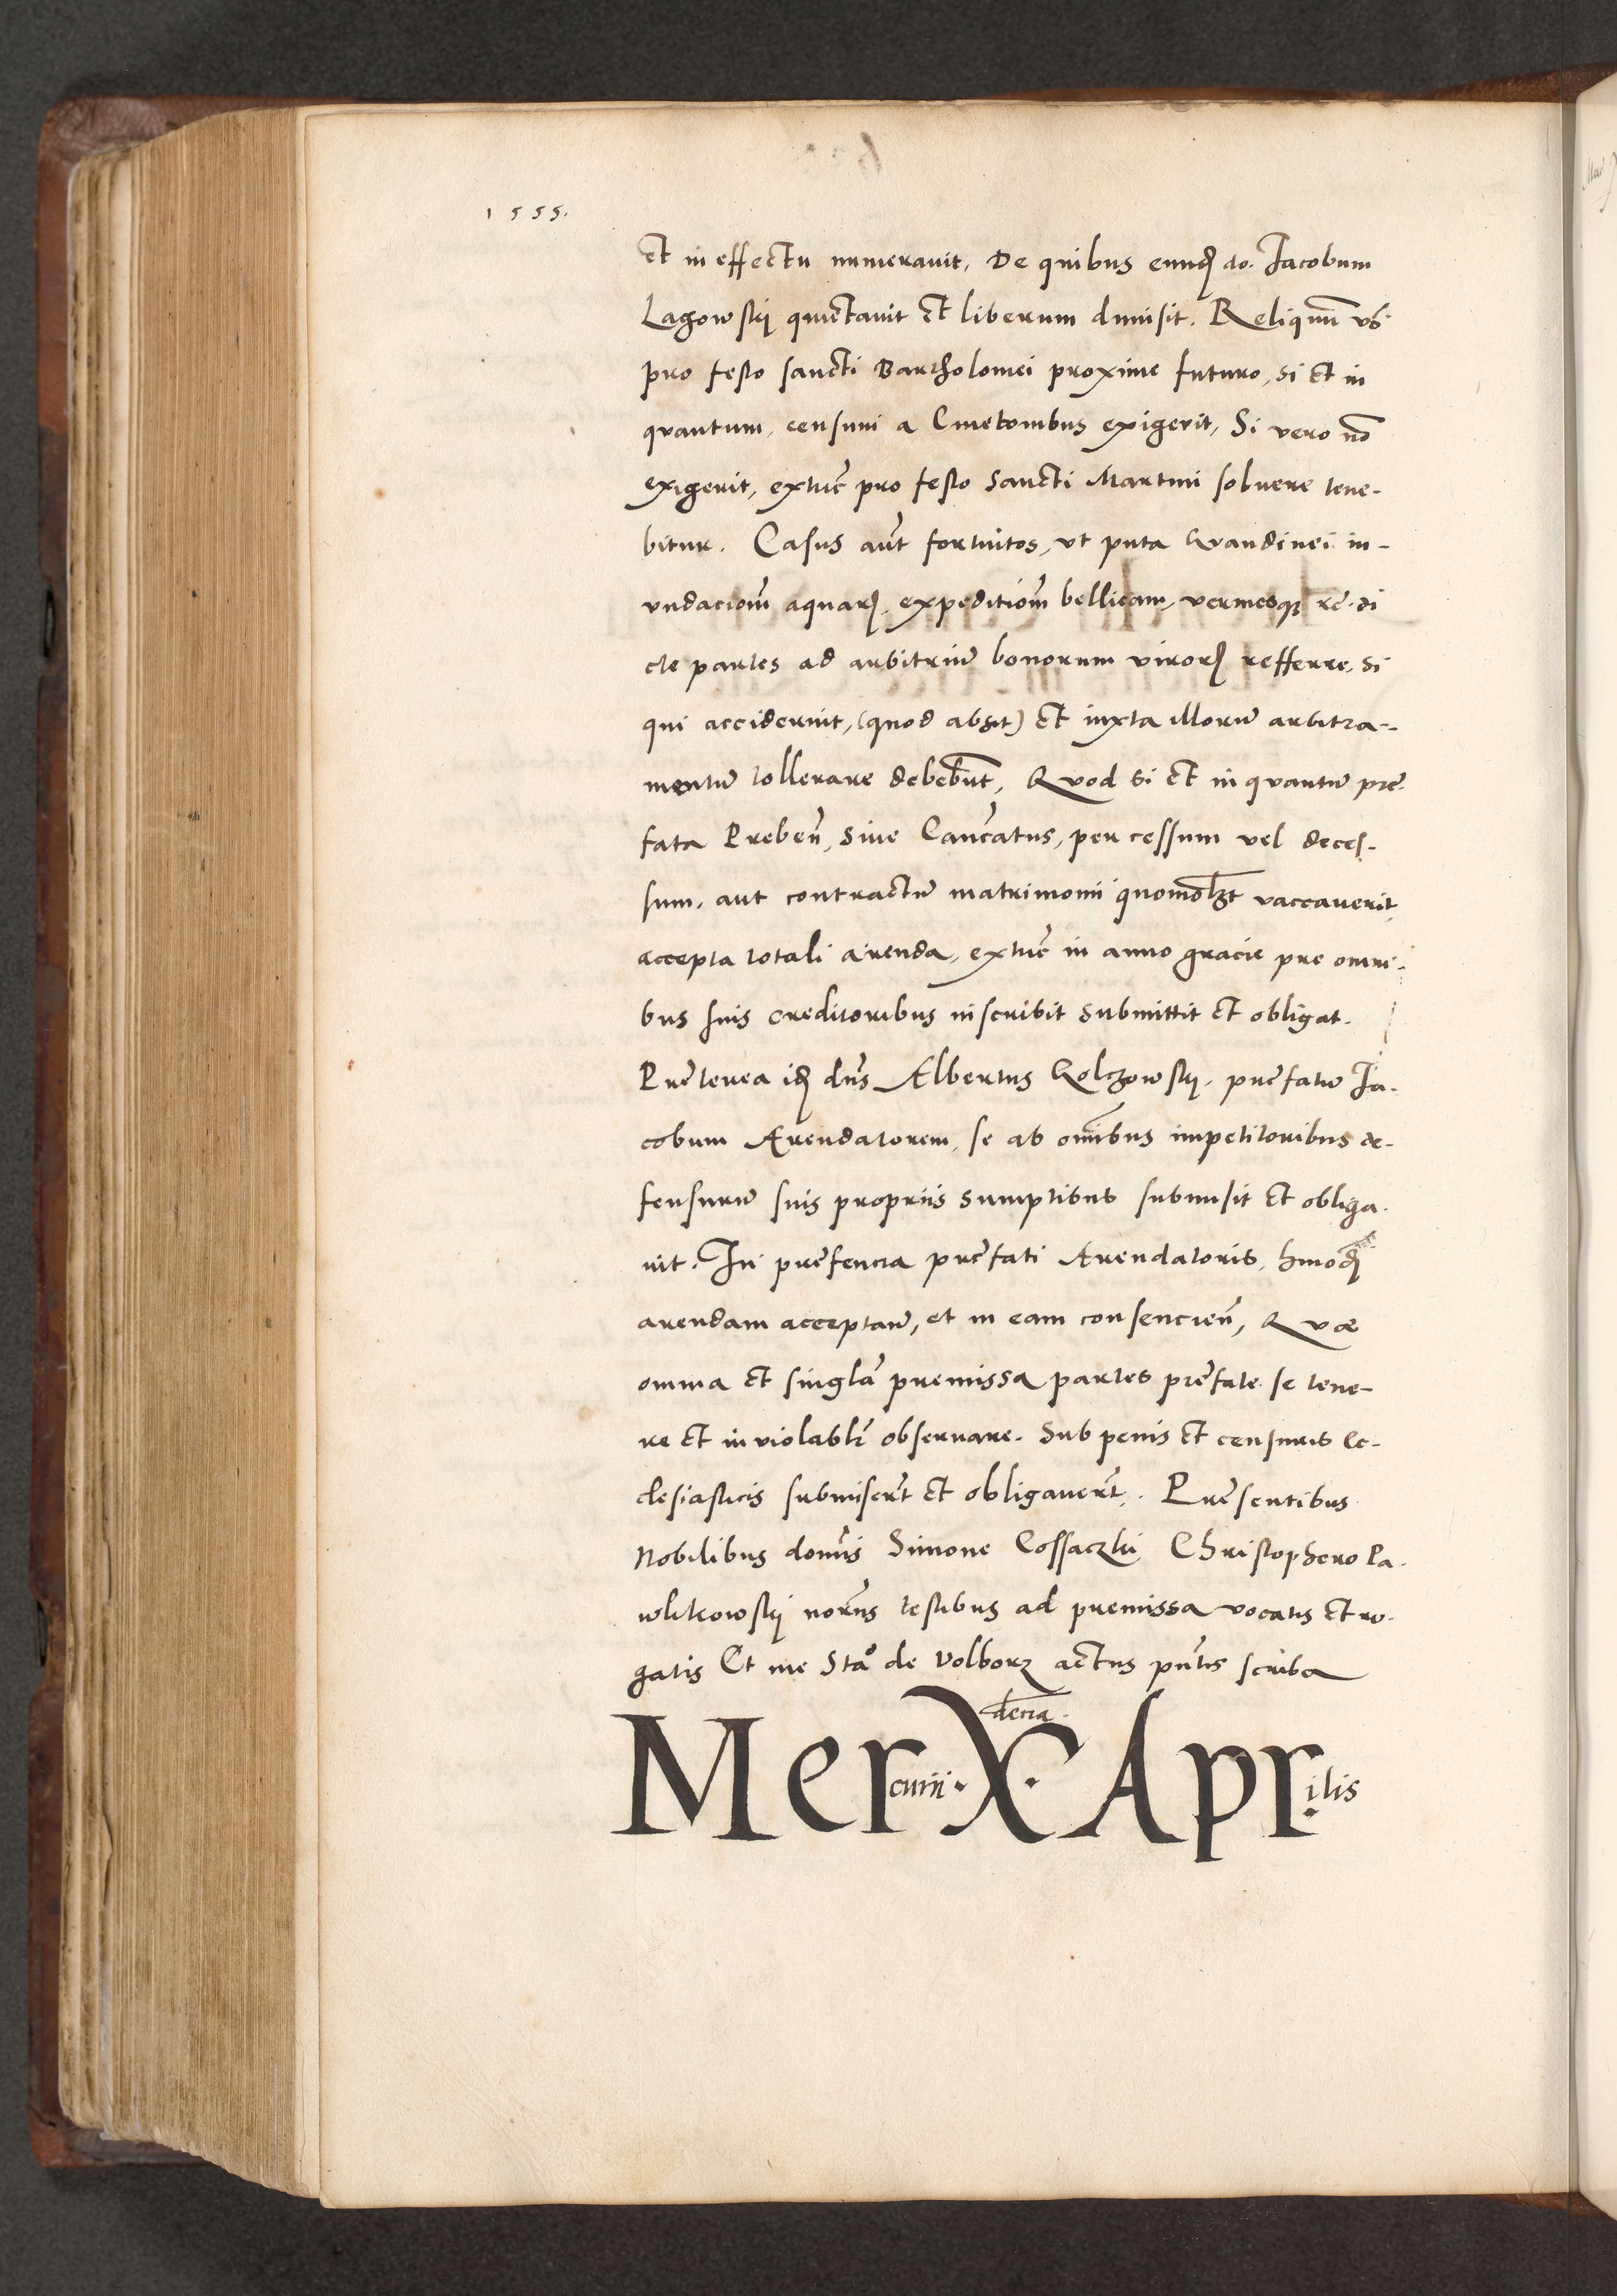 1555.
Et in effectu numerauit, De quibus eund do. Iacobum
Lagowskÿ quictauit Et liberum dimisit. Reliquũ vs̃
pro festo sancti Bartholomei proxime futuro, si Et in
quantum, censum a Cmetonibus exigerit, Si vero nõ
exigerit, extũc pro festo Sancti Martini soluere tene-
bitur. Casus aũt fortuitos, vt puta Grandinei in-
undacioñm aquarꝝ, expeditioñm bellicam, vermesqꝫ rc̃. di
cte partes ad arbitriũ bonorum virorꝝ refferre, si
qui acciderint, (quod absit) Et iuxta illorũ arbitra-
mentũ tollerare debebũt, Quod si Et in quantũ pre
fata Prebeñ, Siue Cañcatus, per cessum vel deces-
sum, aut contractũ matrimonii quomolꝫt vaccauerit
accepta totali arenda, extũc in anno gracie pre omni-
bus suis creditoribus inscribit submittit Et obligat.
Preterea id dñs Albertus Golczowskÿ, prefatũ Ia-
cobum Arendatorem, se ab oñibus impetitoribus de-
fensurũ suis propriis sumptibus submisit Et obliga-
uit. In presencia prefati Arendatoris, hmođ
arendam acceptañ, et in eam consencieñ, Quæ
omnia Et singl̃a premissa partes prefate se tene-
re Et inuiolabl̃r obseruare. Sub penis Et censuris Ec-
clesiasticis submiser̃t Et obligauer̃t. Presentibus
Nobilibus dominis Simone Cossaczki Christophero Pa-
wlikowskÿ nor̃ns testibus ad premissa vocatis Et ro-
gatis Et me Sta° de Volborz actus pñtis scriba
Mercurii · X · decia · Aprilis